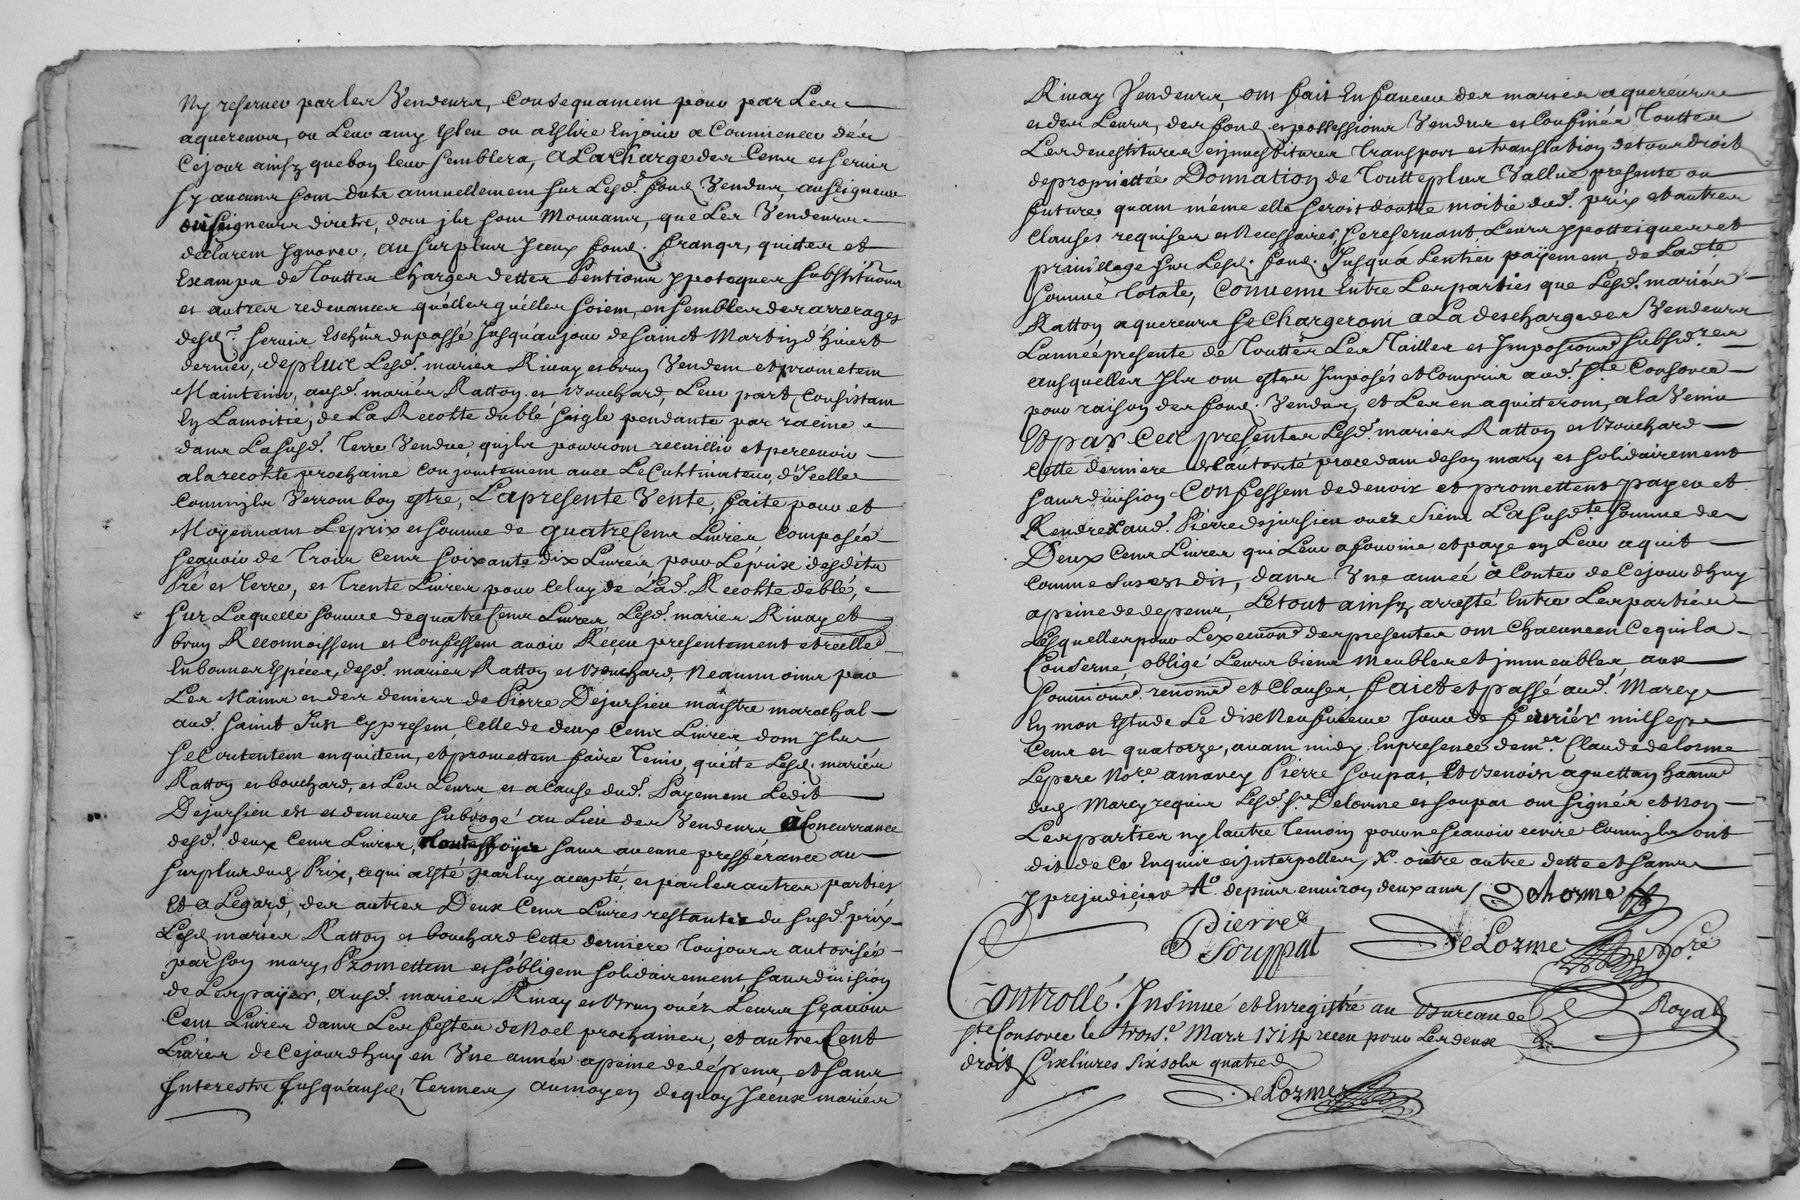 Ny reserver par les Vendeurs, Consequament pour par Les
aquereurs, ou Leur amy Esleu ou a Eslire En jouir a Commencer dés
Cejour ainsy que bon leur Semblera, A La Charge des Cens et servis
sy aucuns sont dubs annuellement sur Lesd.s fond Vendus au seigneur
ou seigneurs directs, dont ils sont Mouvans, que Les Vendeurs
déclarent Ignorer, au surplus Iceux fond. francqs, quittes et
Exampts de Touttes Charges dettes Pentions ypoteques substitũons
et autres redevances quélles quélles soient, ensembles des arrerages
desd.s servis Escheûs du passé Jusqu'au jour de saint Martin d'hivert
dernier, de plus Lesd. mariés Rivay et brun Vendent et prometent
Maintenir, ausd. mariés Ratton et Bouchard, Leur part Consistant
En La moitié, de La Recolte du blé seigle pendante par racine
dans La susd. terre Vendue, quils pourront recuillir et percevoir
a la recolte prochaine conjointement avec Le Cultivateur d'Icelle
Comm'ils Verront bon estre, La presente Vente, faite pour et
Moyennant Le prix et somme de quatre Cens Livres Composée
sçavoir de Trois Cens soixante dix Livres pour Le prix desdits
Pré et Terre, et Trente Livres pour Celuy de Lad. Recolte de blé,
sur Laquelle somme de quatre Cens Livres, Lesd. mariés Rivay et
brun Reconnoissent et Confessent avoir Receu presentement et reellet
En bonnes Espéces, desd. mariés Ratton et Bouchard, Neanmoins par
Les Mains et des deniers de Pierre Dejursieu maistre marechal
aud. saint Just Cy present, Celle de deux Cens Livres dont Ils
se Contentent en quittent, et promettent faire Tenir, quitte Lesd. mariés
Ratton et bouchard, et Les Leurs et a Cause dud. Payement Ledit
Dejursieu est et demeure subrogé au Lieu des Vendeurs à Concurrance
desd. deux Cens Livres, sans aucune prefférance au
surplus dud. Prix, ce qui a esté par luy accepté, et par les autres parties
Et a L'égard, des autres Deux Cens Livres restantes du susd. prix
Lesd. mariés Ratton et bouchard Cette derniere Toujours autorisée
par son mary, Promettent et s'obligent solidairement sans division
de Les payer, ausd. mariés Rivay et Brun ou éz Leurs sçavoir
Cent Livres dans Les festes de Noel prochaines, et autre Cent
Livres de Cejourd'huy en Vne année a peine de dépens, et sans
Interestz Jusqu'ausd. Termes, au moyen de quoy Iceux mariés
Rivay Vendeurs, ont fait En faveur des mariés aquereurs
et des Leurs, des fond. et possessions Vendus et Confinés Touttes
Les devestitures et investitures Transport et translation de tous droit
de proprietté Donnation de Toutte plus Vallue presente ou
future, quant méme elle seroit d'outre moitié dud. prix et autres
Clauses requises et Necessaires, se reservant, Leurs ypotteques et
privillege sur Lesd. fond. Jusqu'a L'entier payement, de Lad.te
somme Totale, Convenu Entre Les parties que Lesd. mariés
Ratton aquereurs se Chargeront a La descharge des Vendeurs
L'année presente de Touttes Les Tailles et Imposions subsid.res
ausquelles Ils ont estes Imposés et Compris aud. S.te Consorce
pour raison des fond. Vendus, et Les en aquitteront, a la Venir
Et par Ces presentes Lesd. mariés Ratton et Bouchard
Cette derniere de l'autorité procedant de son mary et solidairement
sans division Confessent de devoir et promettent payer et
Rendre aud. Pierre dejursieu ou ez siens La susd.te somme de
Deux Cens Livres qui Leur a fournie et payé en Leur aquit
Comme sus est dit, dans Vne année à Conter de Cejourd'huy
a peine de depens, Le tout ainsy arresté Entre Les parties
Lesquelles pour L'exemon des presentes ont Chacune en Ce qui la
Conserne, obligé Leurs biens meubles et immeubles aux
soumions. renons et Clauses, faict et passé aud. Marcy
En mon Estude Le dix Neufvieme Jour de février mil sept
Cens et quatorze, avant midy En presence de m.re Claude delorme
Le pere No.re a marcy Pierre soupat, Et Benoist aquettan haant
dud. Marcy requis Lesd. s.rs Delorme et soupat ont signés et non
Les parties ny l'autre temoin pour ne scavoir ecrire Comm'ils ont
dit de Ce Enquis et Interpellés, X. oûtre autre dette et sans
y prejudicier X.o depuis environ deux ans / Delorme
Pierre
Souppat
DeLorme No.re
Royal
Controllé. Insinué et Enregistré au Bureau de
S.te Consorce le trois.e Mars 1714 receu pour Les deux
droit Six livres six sols quatre d
DeLorme